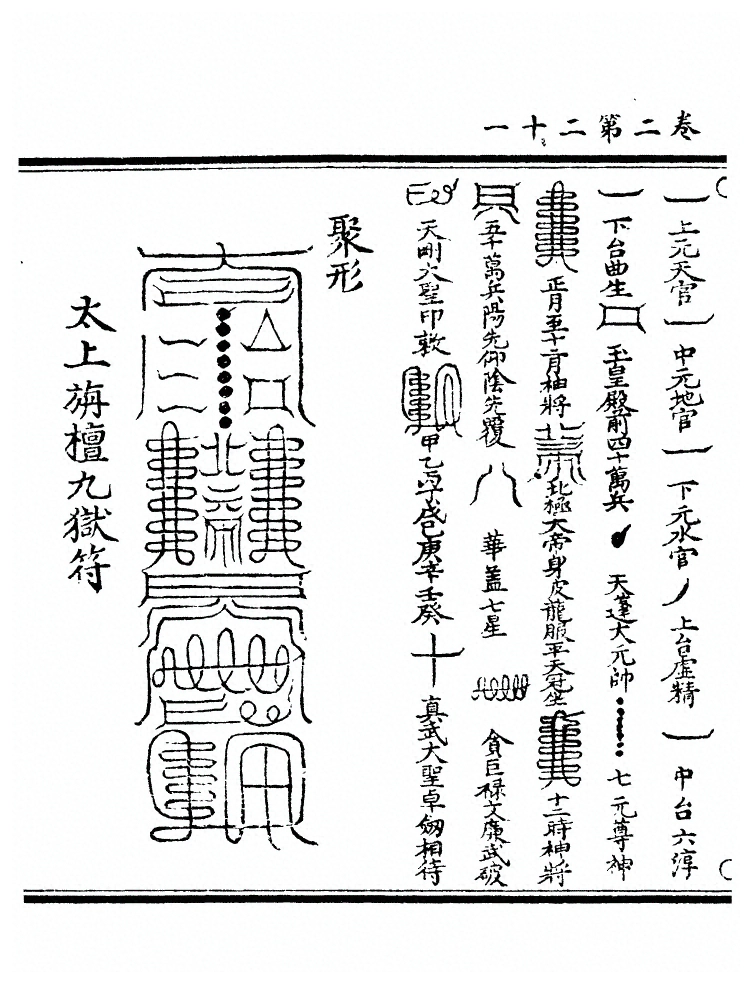 卷二第二十一
上元天官 中元地官 下元水官 上台虛精 中台六淳
下台曲生 玉皇殿前四十萬兵 天蓬大元帥 七元尊神
正月至十二月神將 北極大帝身皮龍服平天冠坐 十二時神將
五十萬兵陽先仰陰先覆 華蓋七星 貪巨祿文廉武破
天剛大聖印敕 甲乙丁戊己庚辛壬癸 真武大聖卓劒相待
聚形
太上旃檀九獄符